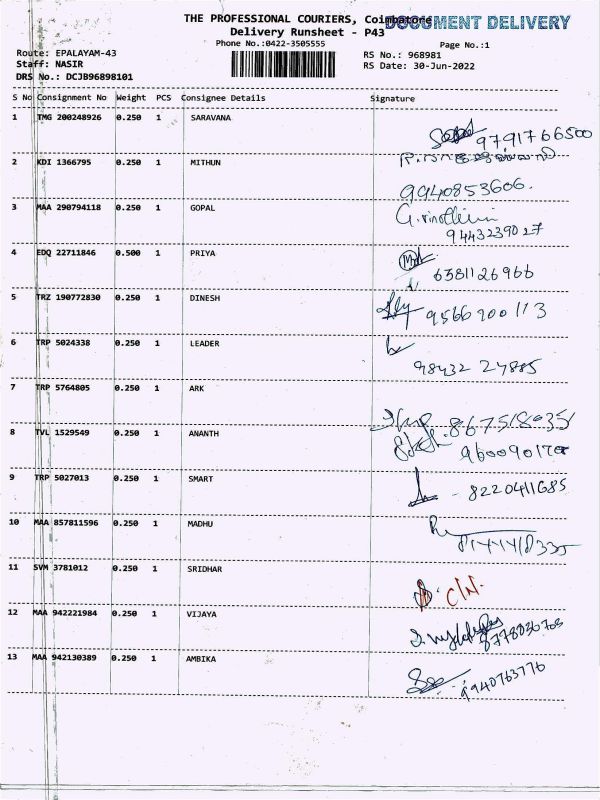 THE PROFESSIONAL COURIERS, Coimbatore
DOCUMENT DELIVERY
Delivery Runsheet - P43
Phone No.:0422-3505555
Page No.:1
Route: EPALAYAM-43
RS No.: 968981
Staff: NASIR
RS Date: 30-Jun-2022
DRS No.: DCJB96898101
S No Consignment No Weight PCS Consignee Details Signature
1 TMG 200248926 0.250 1 SARAVANA
9791766500
2 KDI 1366795 0.250 1 MITHUN
9940853606.
3 MAA 290794118 0.250 1 GOPAL
9443239027
4 EDQ 22711846 0.500 1 PRIYA
6381126966
5 TRZ 190772830 0.250 1 DINESH
9566900113
6 TRP 5024338 0.250 1 LEADER
98432 27885
7 TRP 5764805 0.250 1 ARK
8 TVL 1529549 0.250 1 ANANTH
9 TRP 5027013 0.250 1 SMART
- 8220411685
10 MAA 857811596 0.250 1 MADHU
11 SVM 3781012 0.250 1 SRIDHAR
12 MAA 942221984 0.250 1 VIJAYA
13 MAA 942130389 0.250 1 AMBIKA
9940763776